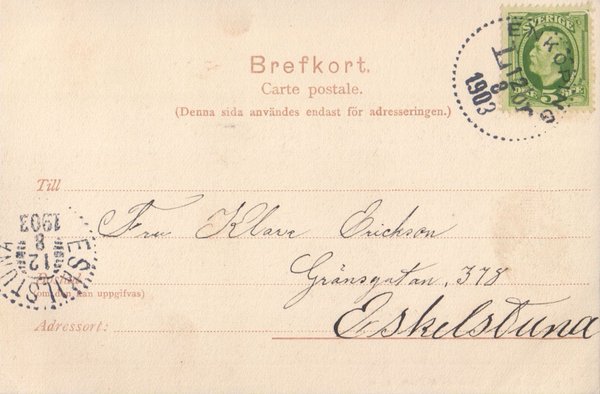 SVERIGE
ENKÖPING
12 8 1903
5 5
Brefkort.
Carte postale.
(Denna sida användes endast för adresseringen.)
Till
Fru Klara Erickson
Gränsgatan, 378
(om den kan uppgifvas)
Adressort: Eskelstuna
ESKILSTUNA
12 8 1903